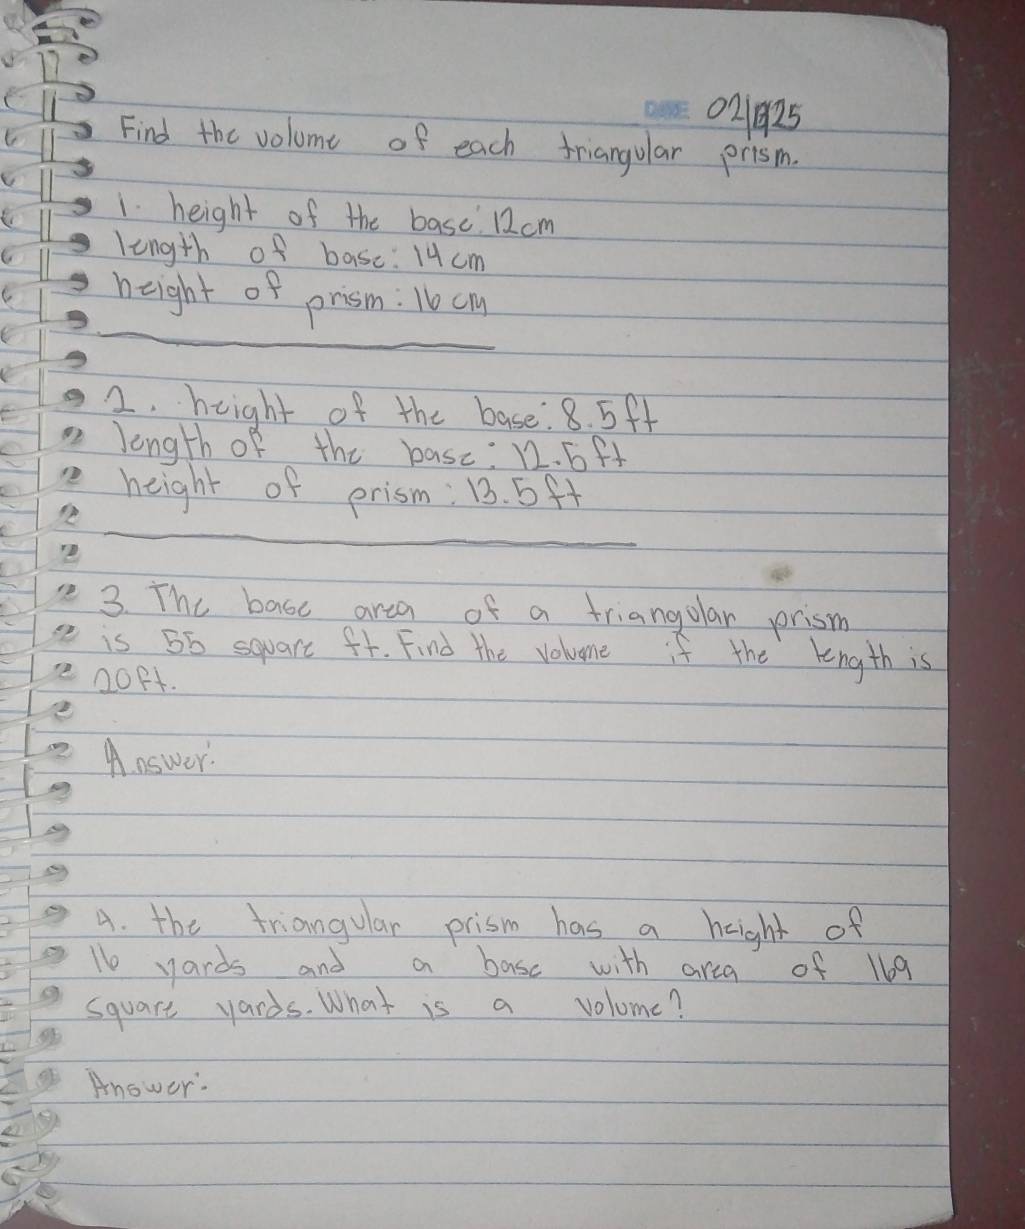 DATE 02/19/25
Find the volume of each triangular prism.
1. height of the base: 12cm
length of base: 14 cm
height of prism: 16 cm
2. height of the base: 8.5ft
length of the base: 12.5ft
height of prism: 13.5ft
3. The base area of a triangular prism
is 55 square ft. Find the volume if the length is
20ft.
Answer:
4. the triangular prism has a height of
16 yards and a base with area of 169
square yards. What is a volume?
Answer: